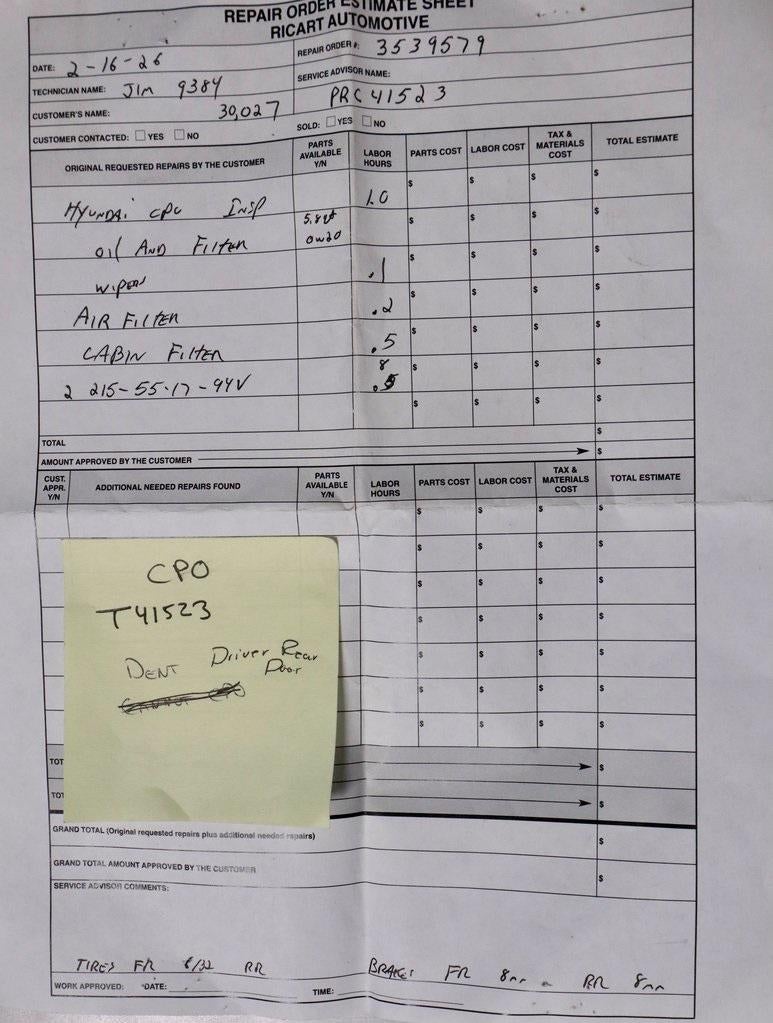 REPAIR ORDER ESTIMATE SHEET
RICART AUTOMOTIVE
DATE: 2-16-26
REPAIR ORDER #: 3539579
TECHNICIAN NAME: JIM 9384
SERVICE ADVISOR NAME:
PRC41523
CUSTOMER'S NAME: 30,027
CUSTOMER CONTACTED: YES NO
SOLD: YES NO
ORIGINAL REQUESTED REPAIRS BY THE CUSTOMER PARTS AVAILABLE Y/N LABOR HOURS PARTS COST LABOR COST TAX & MATERIALS COST TOTAL ESTIMATE
$ $ $ $
HYUNDAI CPO INSP 1.0
$ $ $ $
OIL AND FILTER 5.8qt 0w20
$ $ $ $
WIPERS .1
$ $ $ $
AIR FILTER .2
$ $ $ $
CABIN FILTER .5
$ $ $ $
2 215-55-17-94V .8
$ $ $ $
TOTAL $
AMOUNT APPROVED BY THE CUSTOMER $
CUST. APPR. Y/N ADDITIONAL NEEDED REPAIRS FOUND PARTS AVAILABLE Y/N LABOR HOURS PARTS COST LABOR COST TAX & MATERIALS COST TOTAL ESTIMATE
$ $ $ $
$ $ $ $
$ $ $ $
$ $ $ $
$ $ $ $
$ $ $ $
$ $ $ $
CPO
T41523
DENT Driver Rear Door
TOT $
TOT $
GRAND TOTAL (Original requested repairs plus additional needed repairs) $
GRAND TOTAL AMOUNT APPROVED BY THE CUSTOMER $
SERVICE ADVISOR COMMENTS:
TIRES FR 6/32 RR BRAKES FR 8mm RR 8mm
WORK APPROVED: DATE: TIME: